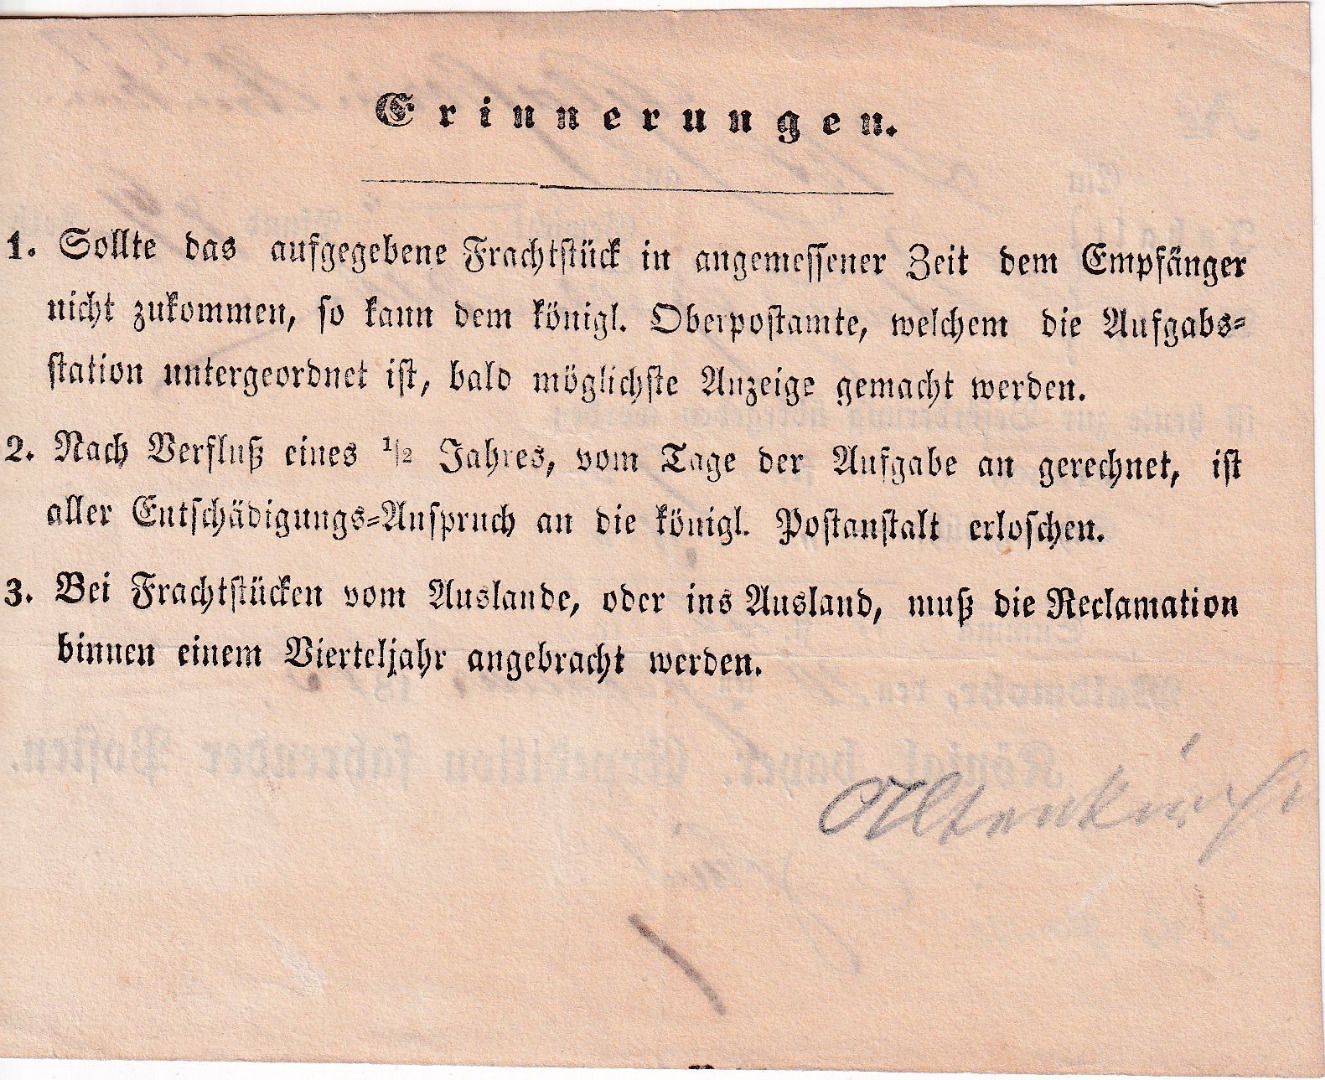 Erinnerungen.
1. Sollte das aufgegebene Frachtstück in angemessener Zeit dem Empfänger
nicht zukommen, so kann dem königl. Oberpostamte, welchem die Aufgabs-
station untergeordnet ist, bald möglichste Anzeige gemacht werden.
2. Nach Verfluß eines 1/2 Jahres, vom Tage der Aufgabe an gerechnet, ist
aller Entschädigungs-Anspruch an die königl. Postanstalt erloschen.
3. Bei Frachtstücken vom Auslande, oder ins Ausland, muß die Reclamation
binnen einem Vierteljahr angebracht werden.
Königl. bayer. Expedition fahrender Posten.
Altenkirch